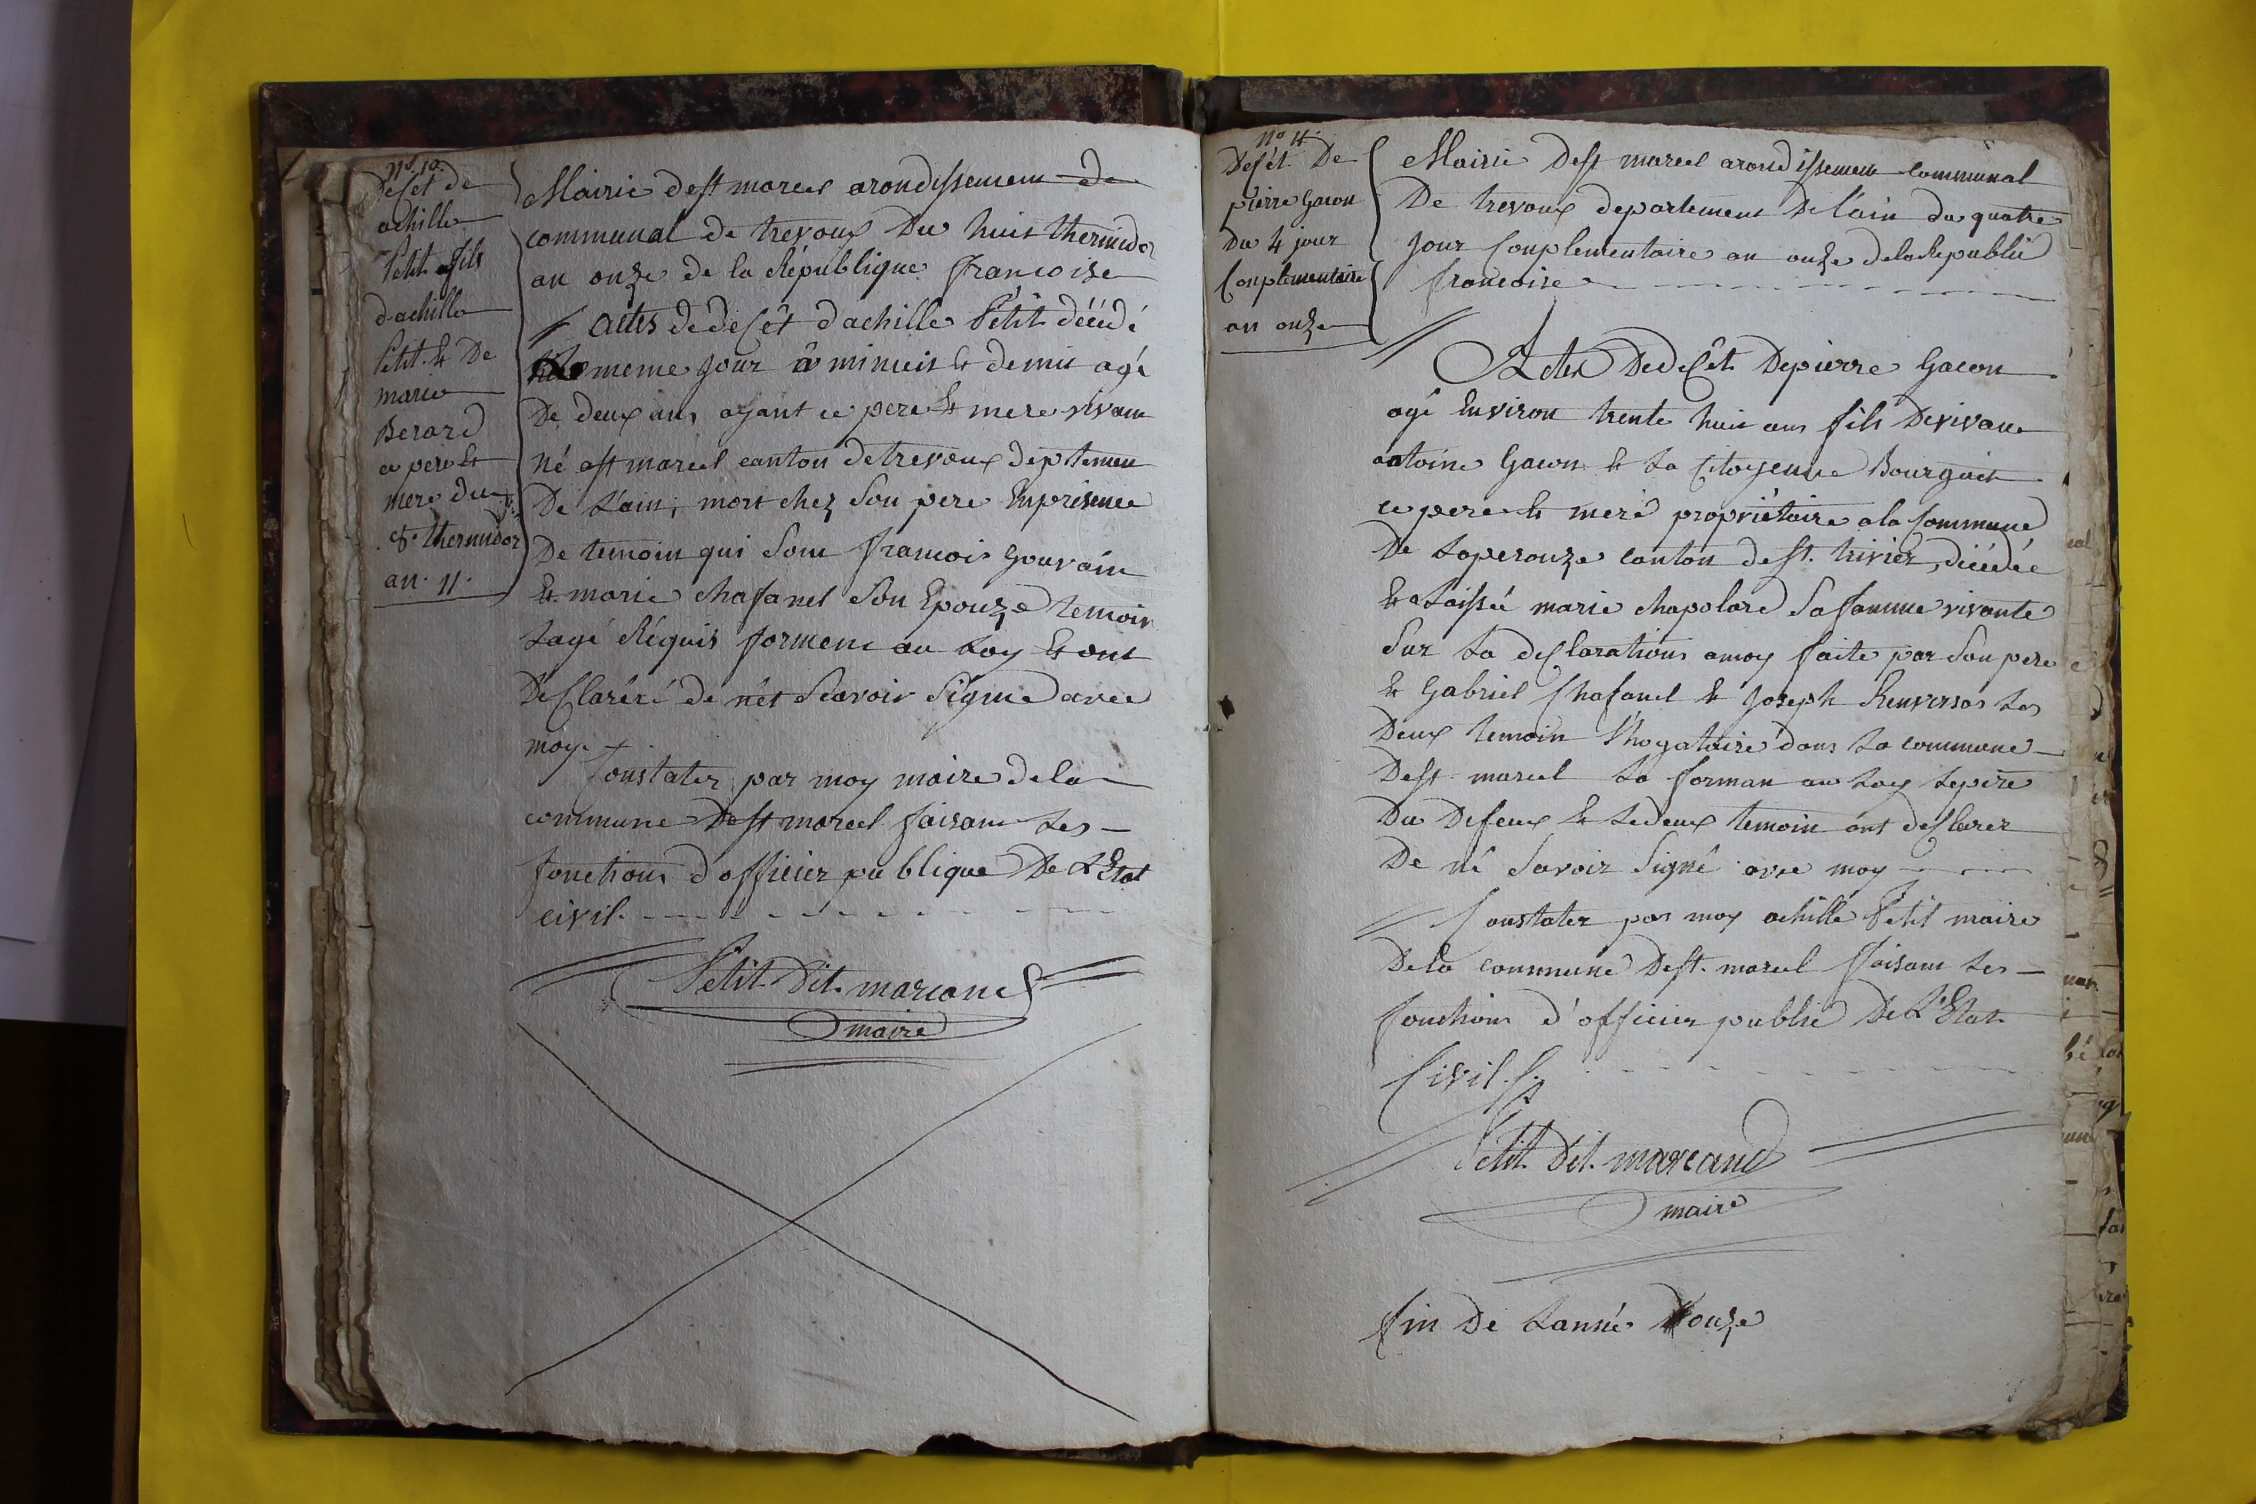 No. 10.
deset de
achille
Petit fils
dachille
Petit. et De
marie
Berard
ce pere et
mere du
8e thermidor
an. 11.
Mairie de st marcel arondissement de
communal de trevoux Du huit thermidor
an onze de la République francoise
actes de deset dachille Petit décédé
meme jour à minuit et demie agé
De deux ans ayant ce pere et mere vivant
né a st marcel canton de trevoux deptemen
De L'ain, mort chez son pere En presence
De temoin qui sont francois Gouvain
et marie chafanel son Epouze temoin
Lagé Réquis forment au Loy et ont
Desclaréré de nét scavoir signé avec
moy.
Constater par moy maire de la
commune De st marcel faisant Les
fonctions d'officier publique De L'Etat
civil.
Petit Dit marcand
maire
No 11.
Deset De
pierre Gacon
Du 4 jour
Conplementaire
an onze
Mairie De st marcel arondissement communal
De trevoux departement De l'ain du quatre
Jour Conplementaire an onze de la Republié
francoise
Actes De deset De pierre Gacon
agé Environ trente huit ans fils De vivant
antoine Gacon et La Citoyenne Bourgait
ce pere et meré propriétaire a la Commune
De Laperouze canton de st. trivier, décédée
et Laissée marie chapolard sa famme vivante
Sur La desclarations a moy faite par son pere
et Gabriel Chafanel et Joseph Renversas Les
Deux temoin dans La commune
De st. marcel La forman au Loy Le pere
Du Defeux et Le deux temoin ont desclarer
De né savoir Signé avec moy
Constater par moy achille Petit maire
De la commune De st. marcel faisant Les
fonctions d'officier publié De L'Etat
Civil.
Petit Dit. marcand
maire
fin De Lannée D'onze